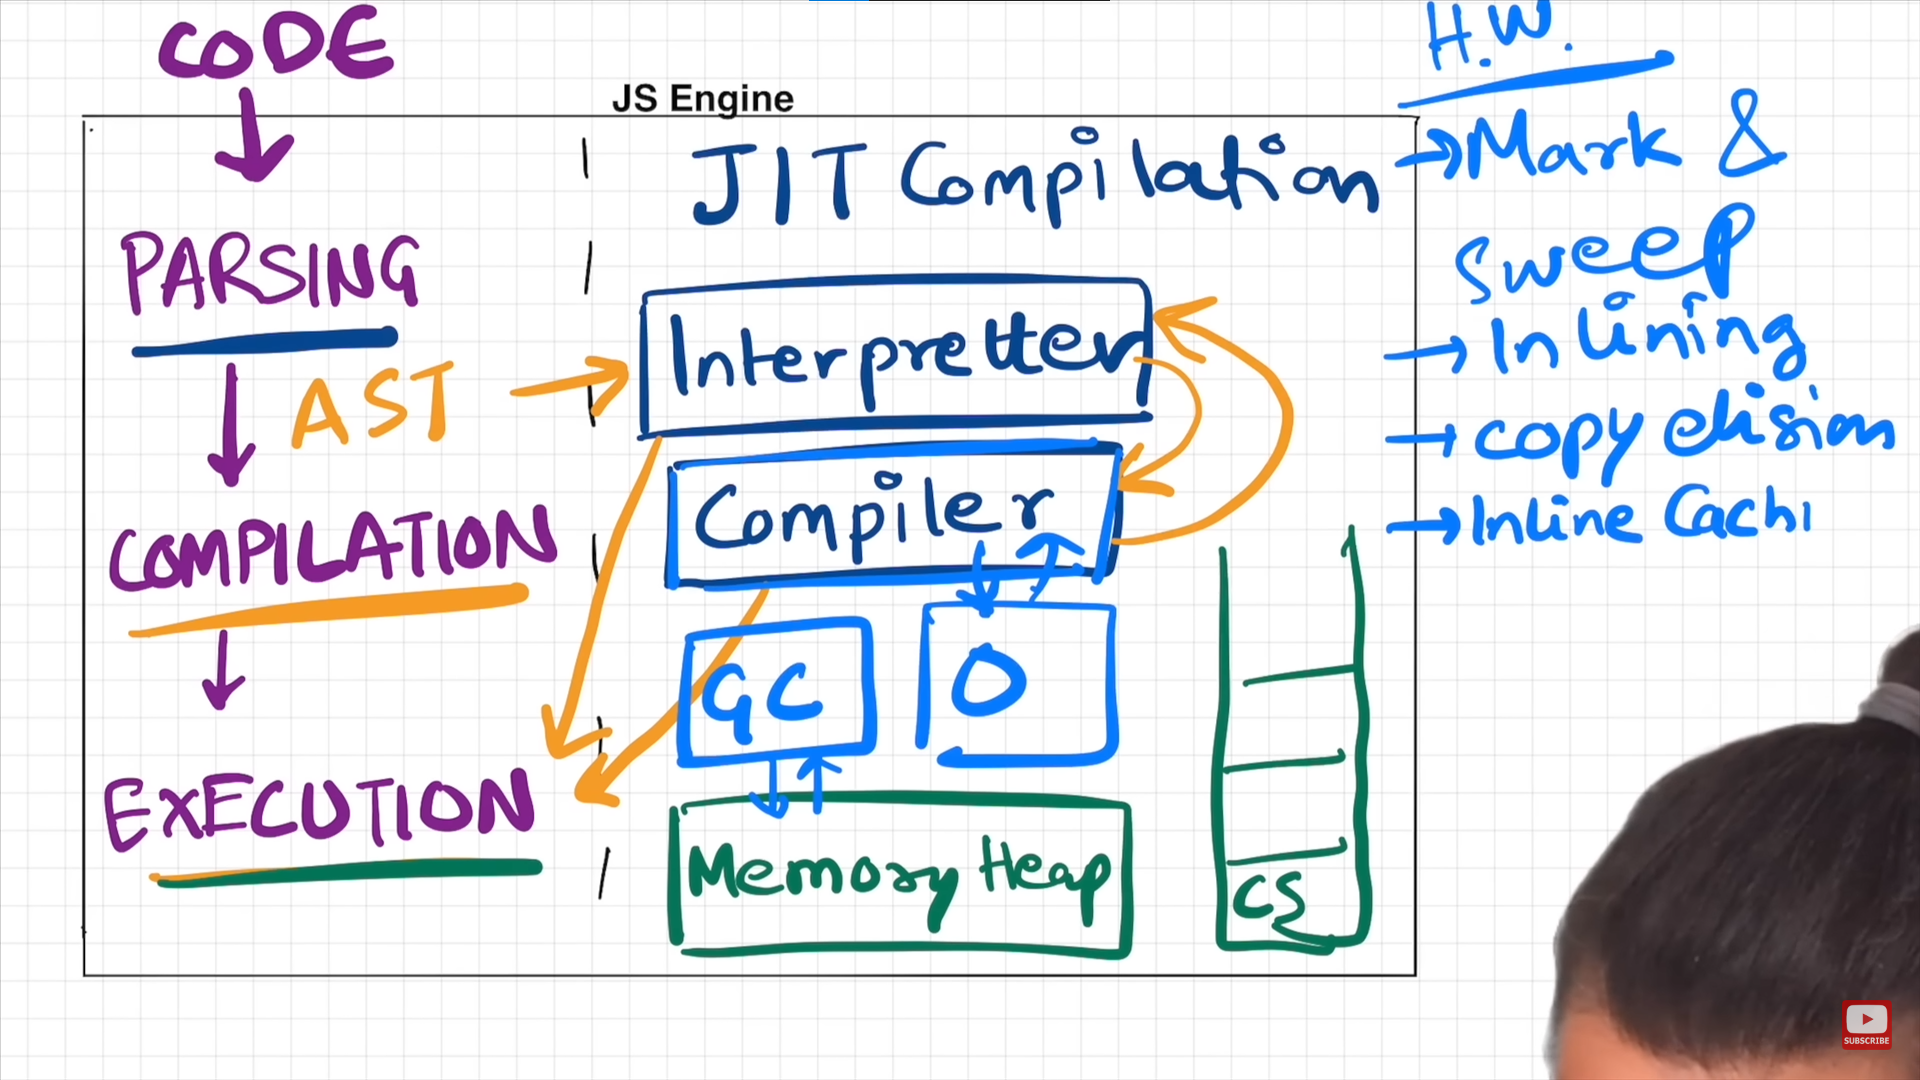 CODE
JS Engine
PARSING
AST
COMPILATION
EXECUTION
JIT Compilation
Interpretter
Compiler
GC
O
Memory Heap
CS
H.W.
→ Mark &
Sweep
→ Inlining
→ copy elision
→ Inline Cachi
SUBSCRIBE